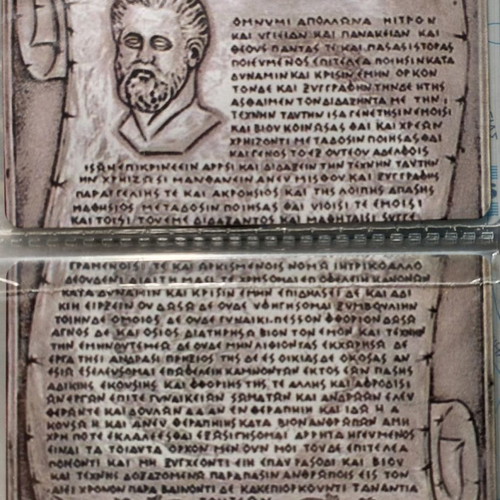 ΟΜΝΥΜΙ ΑΠΟΛΛΩΝΑ ΗΙΤΡΟΝ
ΚΑΙ ΥΓΙΕΙΑΝ ΚΑΙ ΠΑΝΑΚΕΙΑΝ ΚΑΙ
ΘΕΟΥΣ ΠΑΝΤΑΣ ΤΕ ΚΑΙ ΠΑΣΑΣ ΙΣΤΟΡΑΣ
ΠΟΙΕΥΜΕΝΟΣ ΕΠΙΤΕΛΕΑ ΠΟΙΗΣΙΝ ΚΑΤΑ
ΔΥΝΑΜΙΝ ΚΑΙ ΚΡΙΣΙΝ ΕΜΗΝ ΟΡΚΟΝ
ΤΟΝΔΕ ΚΑΙ ΞΥΓΓΡΑΦΗΝ ΤΗΝΔΕ ΗΤΗΣ
ΑΣΘΑΙ ΜΕΝ ΤΟΝ ΔΙΔΑΞΗΝΤΑ ΜΕ ΤΗΝ
ΤΕΧΝΗΝ ΤΑΥΤΗΝ ΙΣΑ ΓΕΝΕΤΗΣΙΝ ΕΜΟΙΣΙ
ΚΑΙ ΒΙΟΥ ΚΟΙΝΩΣΑΣΘΑΙ ΚΑΙ ΧΡΕΩΝ
ΧΡΗΙΖΟΝΤΙ ΜΕΤΑΔΟΣΙΝ ΠΟΙΗΣΑΣΘΑΙ
ΚΑΙ ΓΕΝΟΣ ΤΟ ΕΞ ΟΥΤΕΟΥ ΑΔΕΛΦΟΙΣ
ΙΣΩΝ ΕΠΙΚΡΙΝΕΕΙΝ ΑΡΡΣΙ ΚΑΙ ΔΙΔΑΞΕΙΝ ΤΗΝ ΤΕΧΝΗΝ ΤΑΥΤΗΝ
ΗΝ ΧΡΗΙΖΩΣΙ ΜΑΝΘΑΝΕΙΝ ΑΝΕΥ ΜΙΣΘΟΥ ΚΑΙ ΞΥΓΓΡΑΦΗΣ
ΠΑΡΑΓΓΕΛΙΗΣ ΤΕ ΚΑΙ ΑΚΡΟΗΣΙΟΣ ΚΑΙ ΤΗΣ ΛΟΙΠΗΣ ΑΠΑΣΗΣ
ΜΑΘΗΣΙΟΣ ΜΕΤΑΔΟΣΙΝ ΠΟΙΗΣΑΣΘΑΙ ΥΙΟΙΣΙ ΤΕ ΕΜΟΙΣΙ
ΚΑΙ ΤΟΙΣΙ ΤΟΥ ΕΜΕ ΔΙΔΑΞΑΝΤΟΣ ΚΑΙ ΜΑΘΗΤΑΙΣΙ ΣΥΓΓΕ
ΓΡΑΜΕΝΟΙΣΙ ΤΕ ΚΑΙ ΩΡΚΙΣΜΕΝΟΙΣ ΝΟΜΩ ΙΗΤΡΙΚΩ ΑΛΛΩ
ΔΕ ΟΥΔΕΝΙ ΔΙΑΙΤΗΜΑΣΙ ΤΕ ΧΡΗΣΟΜΑΙ ΕΠ ΩΦΕΛΕΙΗ ΚΑΜΝΟΝΤΩΝ
ΚΑΤΑ ΔΥΝΑΜΙΝ ΚΑΙ ΚΡΙΣΙΝ ΕΜΗΝ ΕΠΙ ΔΗΛΗΣΕΙ ΔΕ ΚΑΙ ΑΔΙ
ΚΙΗ ΕΙΡΞΕΙΝ ΟΥ ΔΩΣΩ ΔΕ ΟΥΔΕ ΥΦΗΓΗΣΟΜΑΙ ΞΥΜΒΟΥΛΙΗΝ
ΤΟΙΗΝΔΕ ΟΜΟΙΩΣ ΔΕ ΟΥΔΕ ΓΥΝΑΙΚΙ ΠΕΣΣΟΝ ΦΘΟΡΙΟΝ ΔΩΣΩ
ΑΓΝΩΣ ΔΕ ΚΑΙ ΟΣΙΩΣ ΔΙΑΤΗΡΗΣΩ ΒΙΟΝ ΤΟΝ ΕΜΟΝ ΚΑΙ ΤΕΧΝΗΝ
ΤΗΝ ΕΜΗΝ ΟΥ ΤΕΜΕΩ ΔΕ ΟΥΔΕ ΜΗΝ ΛΙΘΙΩΝΤΑΣ ΕΚΧΩΡΗΣΩ ΔΕ
ΕΡΓΑΤΗΣΙ ΑΝΔΡΑΣΙ ΠΡΗΞΙΟΣ ΤΗΣ ΔΕ ΕΣ ΟΙΚΙΑΣ ΔΕ ΟΚΟΣΑΣ ΑΝ
ΕΣΙΩ ΕΣΕΛΕΥΣΟΜΑΙ ΕΠ ΩΦΕΛΕΙΗ ΚΑΜΝΟΝΤΩΝ ΕΚΤΟΣ ΕΩΝ ΠΑΣΗΣ
ΑΔΙΚΙΗΣ ΕΚΟΥΣΙΗΣ ΚΑΙ ΦΘΟΡΙΗΣ ΤΗΣ ΤΕ ΑΛΛΗΣ ΚΑΙ ΑΦΡΟΔΙΣΙ
ΩΝ ΕΡΓΩΝ ΕΠΙ ΤΕ ΓΥΝΑΙΚΕΙΩΝ ΣΩΜΑΤΩΝ ΚΑΙ ΑΝΔΡΩΩΝ ΕΛΕΥ
ΘΕΡΩΝ ΤΕ ΚΑΙ ΔΟΥΛΩΝ Δ Α ΑΝ ΕΝ ΘΕΡΑΠΗΙΗ ΚΑΙ ΙΔΩ Η Α
ΚΟΥΣΩ Η ΚΑΙ ΑΝΕΥ ΘΕΡΑΠΗΙΗΣ ΚΑΤΑ ΒΙΟΝ ΑΝΘΡΩΠΩΝ ΑΜΗ
ΧΡΗ ΠΟΤΕ ΕΚΛΑΛΕΕΣΘΑΙ ΕΞΩ ΣΙΓΗΣΟΜΑΙ ΑΡΡΗΤΑ ΗΓΕΥΜΕΝΟΣ
ΕΙΝΑΙ ΤΑ ΤΟΙΑΥΤΑ ΟΡΚΟΝ ΜΕΝ ΟΥΝ ΜΟΙ ΤΟΝΔΕ ΕΠΙΤΕΛΕΑ
ΠΟΙΕΟΝΤΙ ΚΑΙ ΜΗ ΞΥΓΧΕΟΝΤΙ ΕΙΗ ΕΠΑΥΡΑΣΘΑΙ ΚΑΙ ΒΙΟΥ
ΚΑΙ ΤΕΧΝΗΣ ΔΟΞΑΖΟΜΕΝΩ ΠΑΡΑ ΠΑΣΙΝ ΑΝΘΡΩΠΟΙΣ ΕΙΣ ΤΟΝ
ΑΙΕΙ ΧΡΟΝΟΝ ΠΑΡΑΒΑΙΝΟΝΤΙ ΔΕ ΚΑΙ ΕΠΙΟΡΚΟΥΝΤΙ ΤΑΝΑΝΤΙΑ